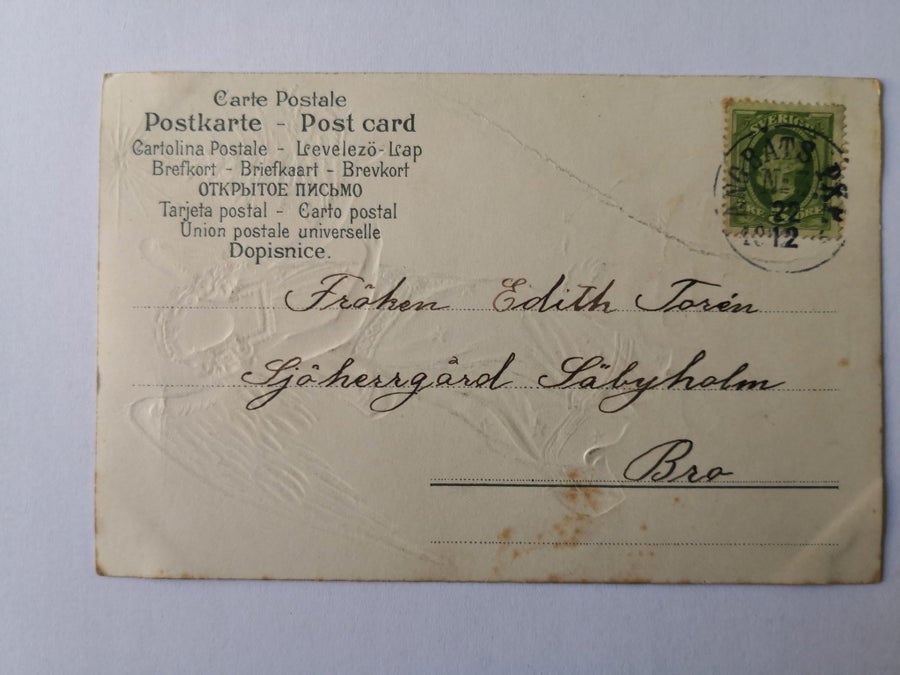 Carte Postale
Postkarte - Post card
Cartolina Postale - Levelezö-Lap
Brefkort - Briefkaart - Brevkort
ОТКРЫТОЕ ПИСЬМО
Tarjeta postal - Carto postal
Union postale universelle
Dopisnice.
SVERIGE
ÅNGBÅTS PXP
No
22
12
Fröken Edith Torén
Sjöherrgård Säbyholm
Bro